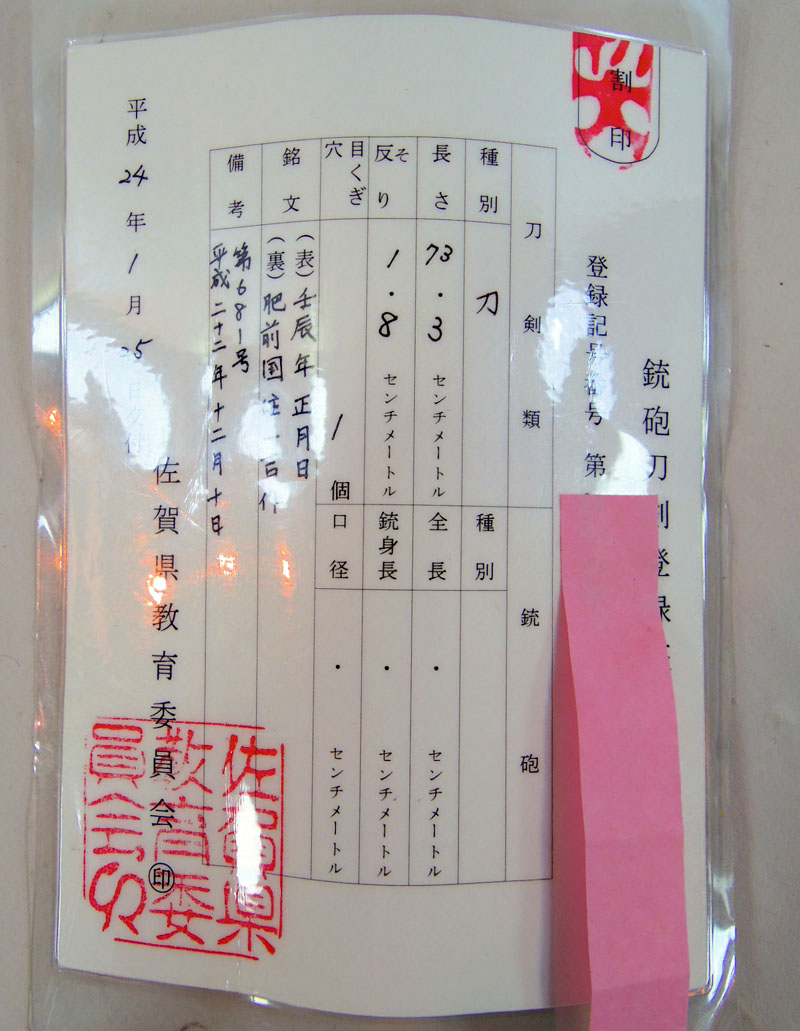 割印
銃砲刀剣登録
登録記号番号 第
刀剣類
銃砲
種別
刀
種別
長さ
73.3 センチメートル
全長
・ センチメートル
反り そり
1.8 センチメートル
銃身長
・ センチメートル
目くぎ穴
1 個
口径
・ センチメートル
銘文
(表) 壬辰年正月日
(裏) 肥前国住一吉作
備考
第681号
平成二十二年十二月十日
平成24年1月25日交付
佐賀県教育委員会 印
佐賀県
教育委
員会印